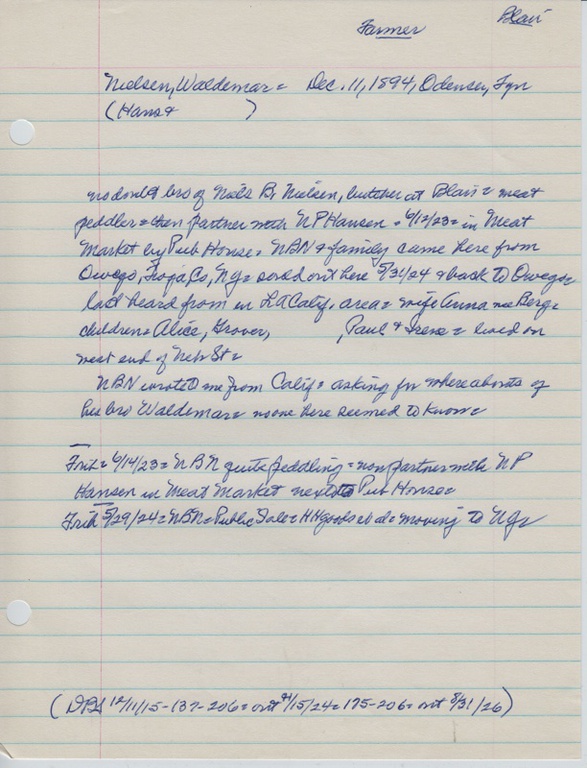 Farmer Blair
Nielsen, Waldemar = Dec. 11, 1894, Odense, Fyn
(Hans & )
no doubt bro of Niels B. Nielsen, butcher at Blair = meat
peddler = then partner with NPHansen = 6/12/23 = in Meat
Market by Pub House = NBN & family came here from
Owego, Tioga, Co, NY = sold out here 5/31/24 & back to Owego =
last heard from in LA Calif. area = wife Anna nee Berg =
children = Alice, Grover, , Paul & Irene = lived on
west end of New St =
NBN wrote to me from Calif = asking for whereabouts of
his bro Waldemar = no one here seemed to know =
Frih = 6/14/23 = NBN quits peddling = now partner with NP
Hansen in Meat Market next to Pub House =
Frih 5/29/24 = NBN = Public Sale = HHgoods = moving to NY =
(DBS 12/11/15-137-206 = out /15/24 = 175-206 = out 8/31/26)